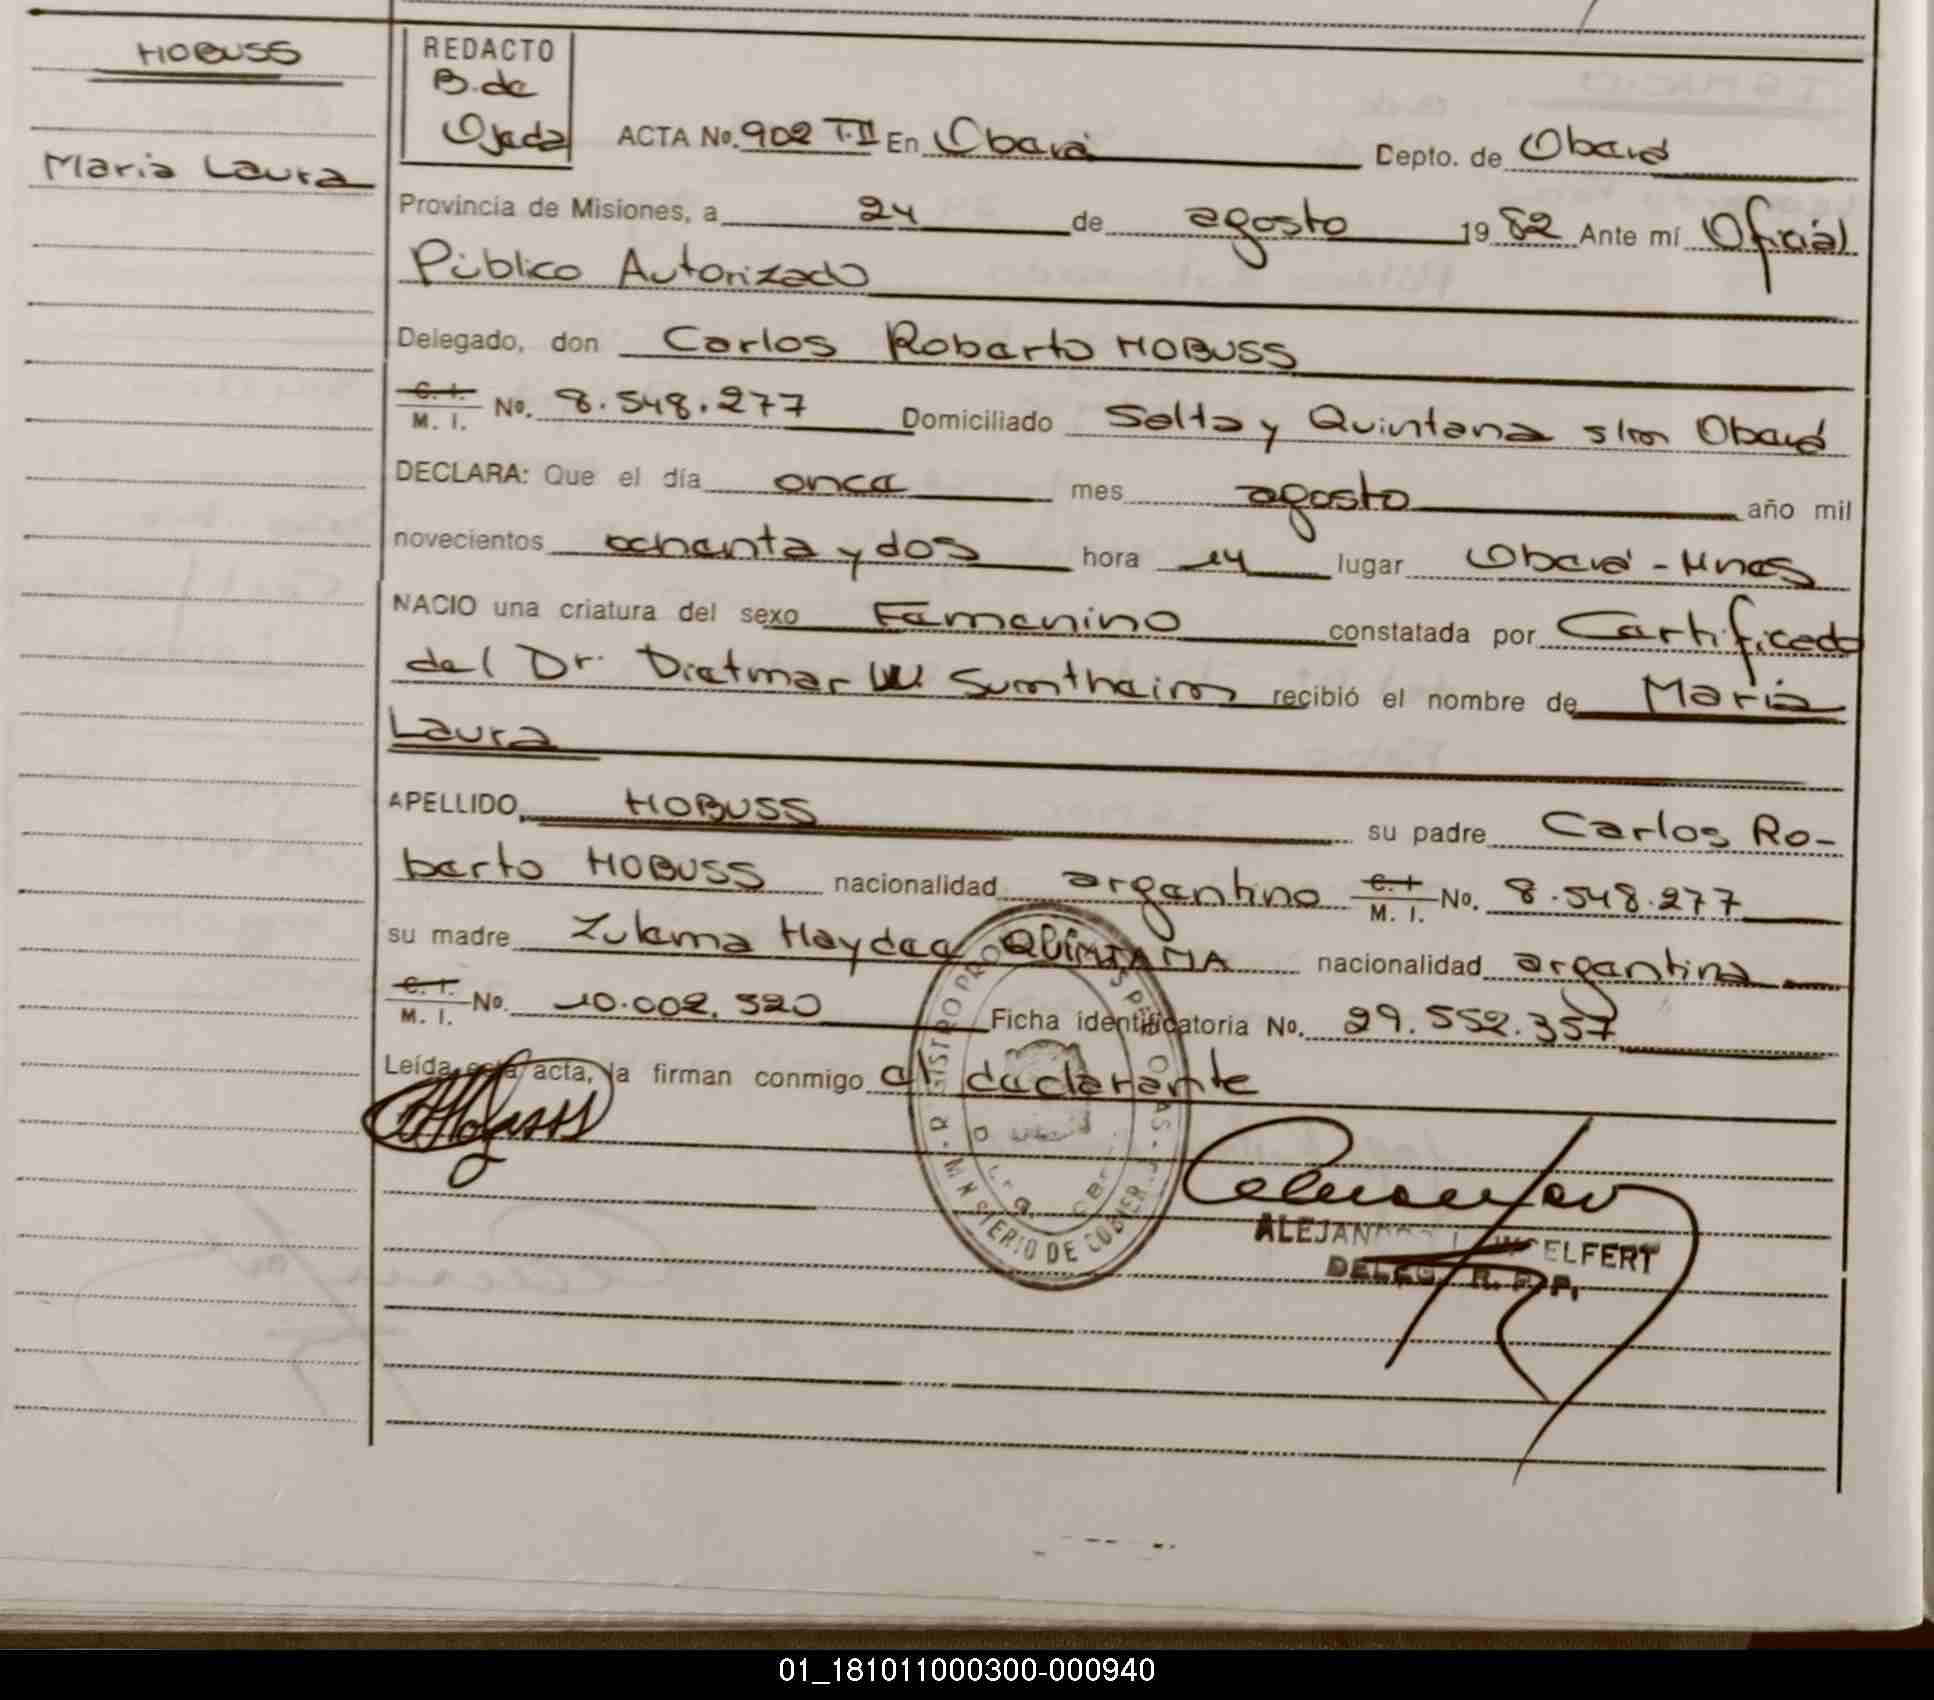 HOBUSS
Maria Laura
REDACTO
B. de
Ojeda
ACTA No. 902 T.II En Oberá Depto. de Oberá
Provincia de Misiones, a 24 de agosto 19 82 Ante mí Oficial
Público Autorizado
Delegado, don Carlos Roberto HOBUSS
C. I. M. I. No. 8.548.277 Domiciliado Salta y Quintana s/m Oberá
DECLARA: Que el día once mes agosto año mil
novecientos ochenta y dos hora 14 lugar Oberá - Mnes
NACIO una criatura del sexo Femenino constatada por Certificado
del Dr. Dietmar W Sumtheim recibió el nombre de María
Laura
APELLIDO, HOBUSS su padre Carlos Ro-
berto HOBUSS nacionalidad argentino C. I. M. I. No. 8.548.277
su madre Zulema Haydee QUINTANA nacionalidad argentina
C. I. M. I. No. 10.002.520 Ficha identificatoria No. 29.552.357
Leída esta acta, la firman conmigo el declarante
MINISTERIO DE GOBIER
ELFERT
DELEG. R. P. P.
01_181011000300-000940